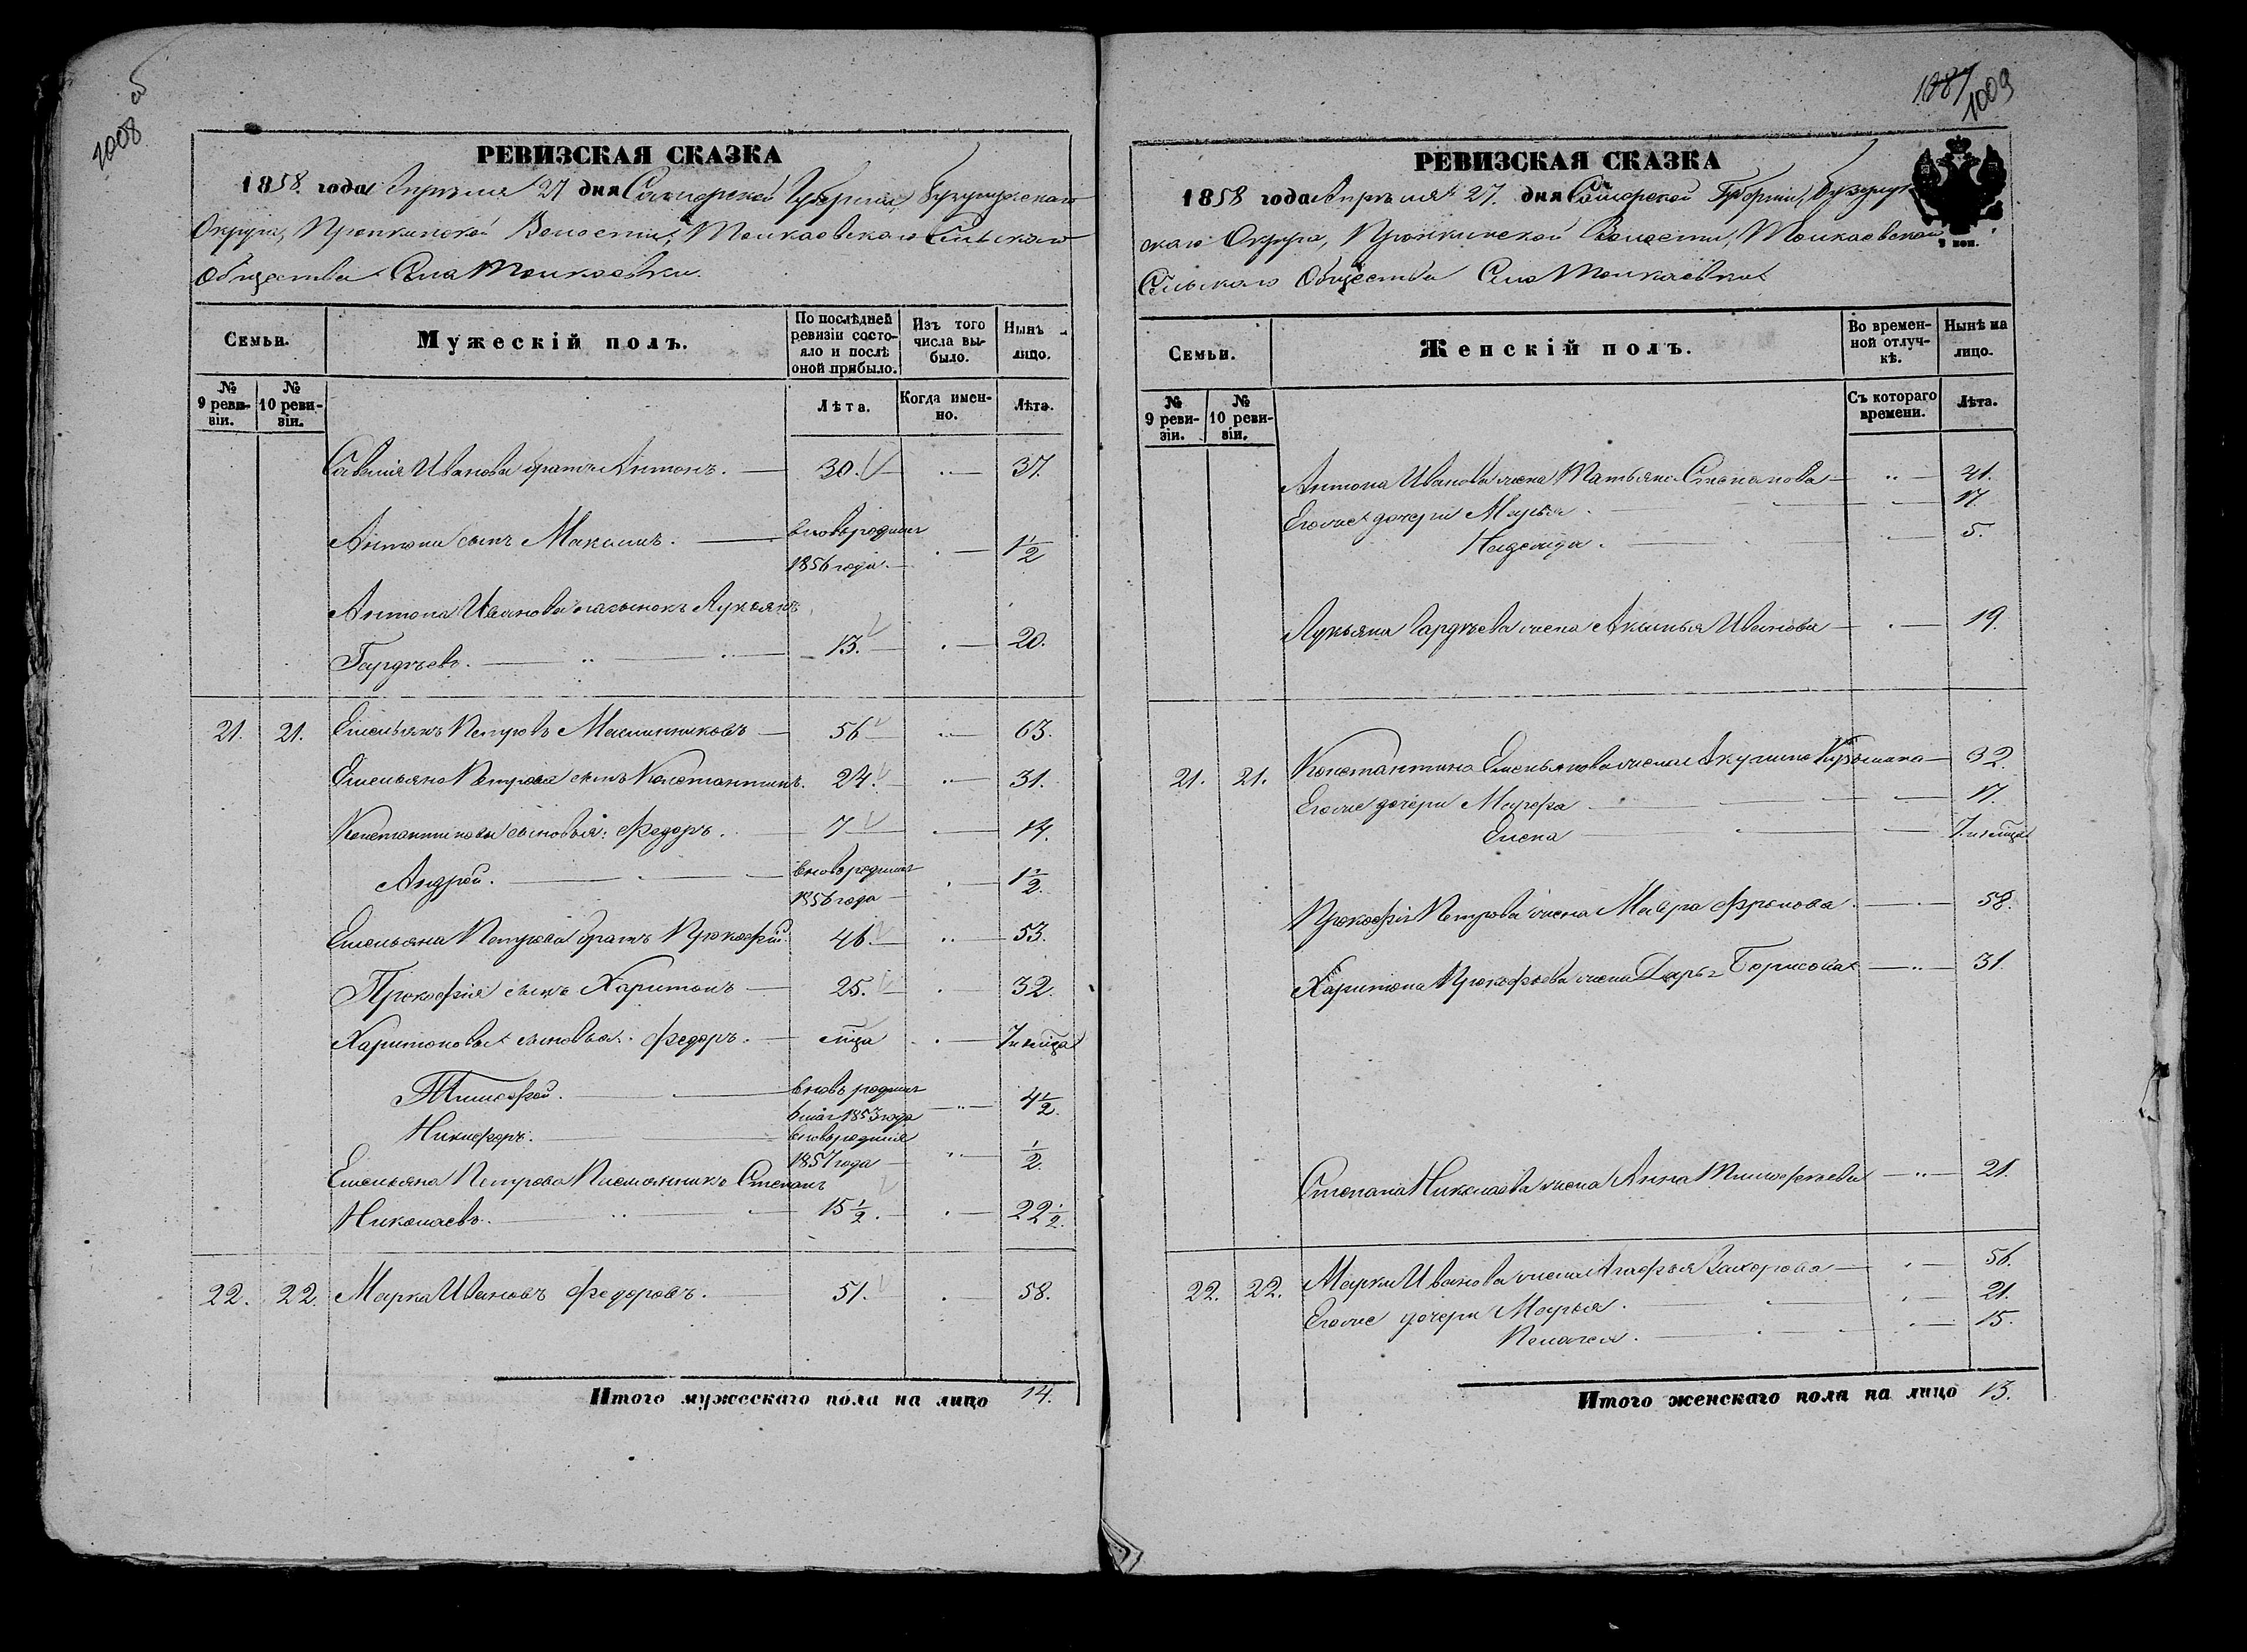 1008 об
РЕВИЗСКАЯ СКАЗКА
1858 года Апрѣля 27 дня Самарской Губерніи, Бузулукскаго
Округа, Пронкинской Волости, Толкаевскаго Сельскаго
Общества Села Толкаевки.
Семьи.
Мужескій полъ.
По послѣдней ревизіи состояло и послѣ оной прибыло.
Изъ того числа выбыло.
Нынѣ лицо.
№ 9 ревизіи.
№ 10 ревизіи.
Лѣта.
Когда именно.
Лѣта.
Савелія Иванова братъ Антонъ. 30. 37.
Антона сынъ Максимъ. вновьрожден 1856 года 1 1/2
Антона Иванова пасынокъ Лукьянъ
Гардѣевъ. 13. 20.
21. 21. Емельянъ Петровъ Масленниковъ 56 63.
Емельяна Петрова сынъ Константинъ. 24. 31.
Константиновы сыновья: Федоръ. 7 14.
Андрей. вновьрожден 1856 года 1 1/2
Емельяна Петрова братъ Прокофій. 46. 53.
Прокофія сынъ Харитонъ 25. 32.
Харитоновы сыновья. Федоръ. 7
Тимофей. вновь рожден 1853 года 4 1/2
Никифоръ. вновьрожден 1857 года 1/2
Емельяна Петрова Племянникъ Степанъ
Николаевъ. 15 1/2. 22 1/2.
22. 22. Марка Ивановъ Федоровъ. 51. 58.
Итого мужескаго пола на лицо 14.
1087
1009
РЕВИЗСКАЯ СКАЗКА
1858 года Апрѣля 27. дня Самарской Губерніи, Бузулук
скаго Округа, Пронкинской Волости, Толкаевской
Сельскаго Общества Села Толкаевки
Семьи.
Женскій полъ.
Во временной отлучкѣ.
Нынѣ на лицо.
№ 9 ревизіи.
№ 10 ревизіи.
Съ котораго времени.
Лѣта.
Антона Иванова жена Татьяна Степанова 41.
Егоже дочери Марья. 17.
Надежда. 5.
Лукьяна Гардѣева жена Аксинья Иванова 19.
21. 21. Константина Емельянова жена Акулина 32.
Егоже дочери Марфа 17.
Елена 7.
Прокофія Петрова жена Мавра Фролова. 58.
Харитона Прокофьева жена Дарья Борисова 31.
Степана Николаева жена Анна Тимофеева 21.
22. 22. Марки Иванова жена Агафья Захарова 56.
Егоже дочери Марья. 21.
Пелагея. 15.
Итого женскаго пола на лицо 13.